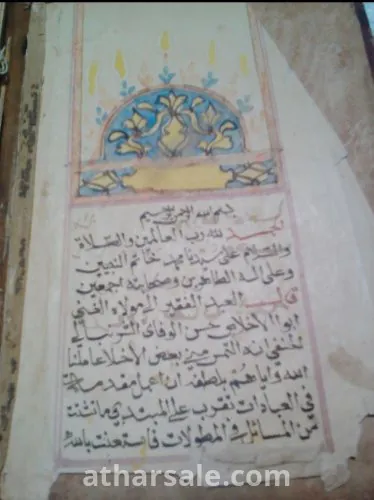 بسم الله الرحمن الرحيم
الحمد لله رب العالمين والصلاة
والسلام على سيدنا محمد خاتم النبيين
وعلى اله الطاهرين وصحابته اجمعين
قال العبد الفقير الى مولاه الغني
ابو الاخلاص حسن الوفائي الشرنبلالي
الحنفي انه التمس مني بعض الاخلا عاملنا
الله واياهم بلطفه ان اعمل مقدمة
في العبادات تقرب على المبتدي ما تشتت
من المسائل في المطولات فاستعنت بالله
atharsale.com